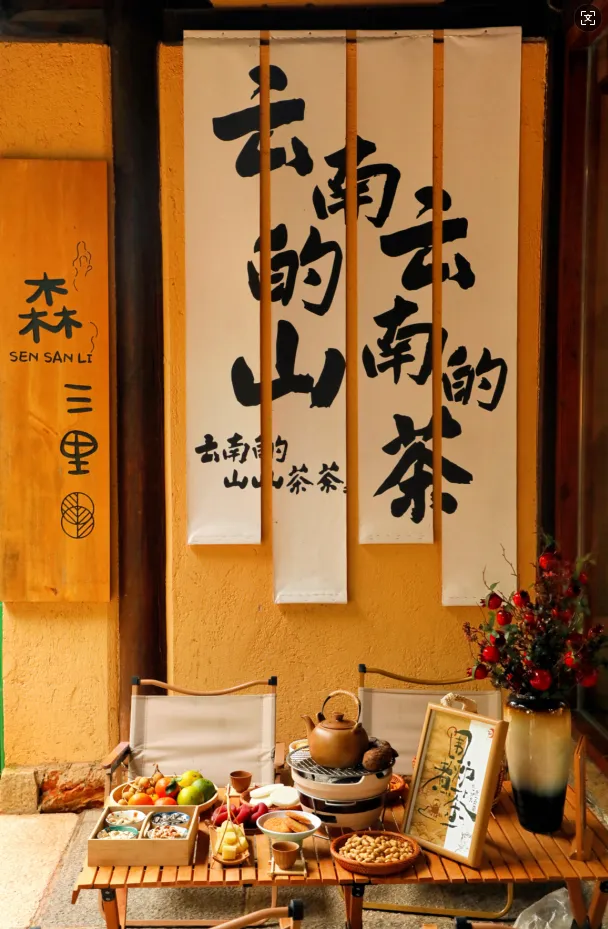 森
SEN SAN LI
三
里
云南
的
山
云南
的
茶
云南的
山山茶茶
围炉
煮茶